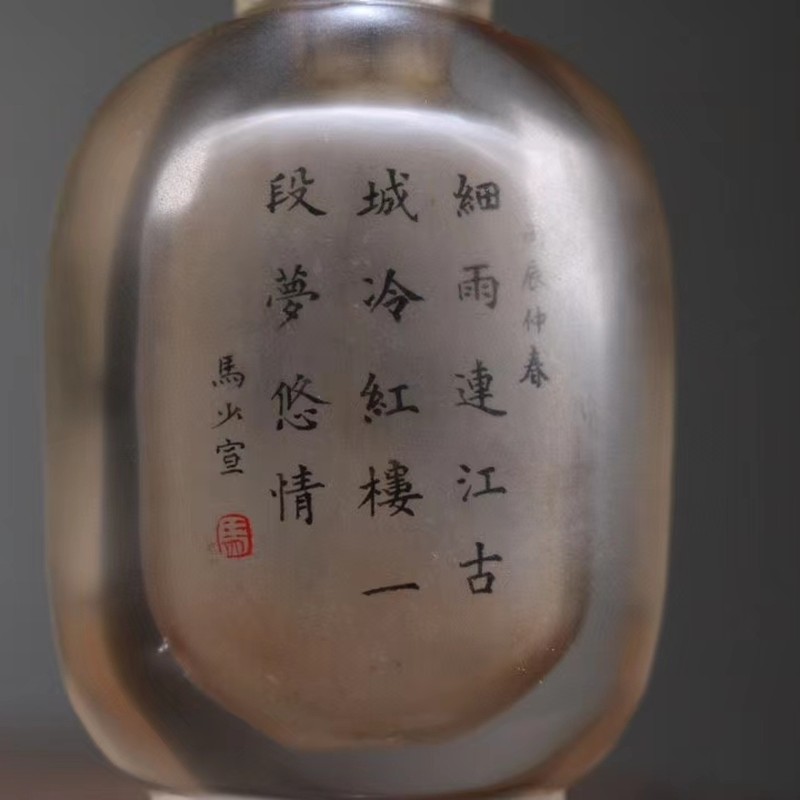 辰仲春
細雨連江古
城冷紅樓一
段夢悠情
馬少宣
馬